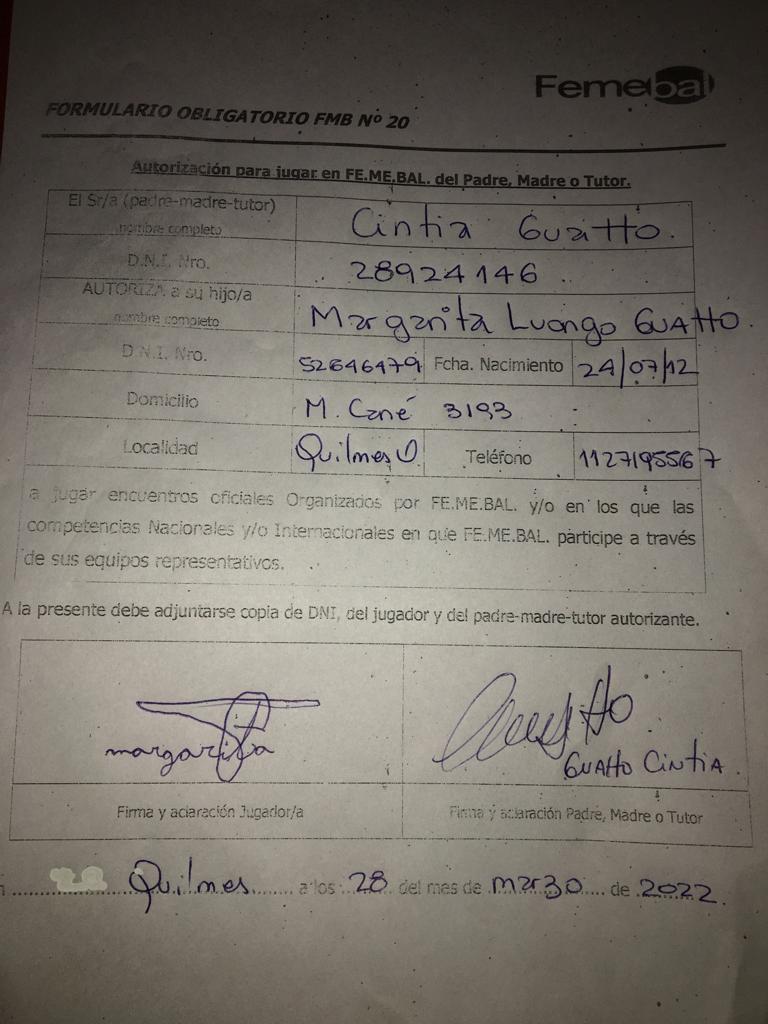 Femebal
FORMULARIO OBLIGATORIO FMB Nº 20
Autorización para jugar en FE.ME.BAL. del Padre, Madre o Tutor.
El Sr/a (padre-madre-tutor)
nombre completo
Cintia Guatto.
D.N.I. Nro.
28924146
AUTORIZA a su hijo/a
nombre completo
Margarita Luongo GUATTO.
D.N.I. Nro.
52646479
Fcha. Nacimiento
24/07/12
Domicilio
M. Cané 3193
Localidad
Quilmes
Teléfono
1127195567
a jugar encuentros oficiales Organizados por FE.ME.BAL. y/o en los que las
competencias Nacionales y/o Internacionales en que FE.ME.BAL. participe a través
de sus equipos representativos.
A la presente debe adjuntarse copia de DNI, del jugador y del padre-madre-tutor autorizante.
margarita
Guatto
GUATTO CINTIA.
Firma y aclaración Jugador/a
Firma y aclaración Padre, Madre o Tutor
Quilmes a los 28 del mes de marzo de 2022.